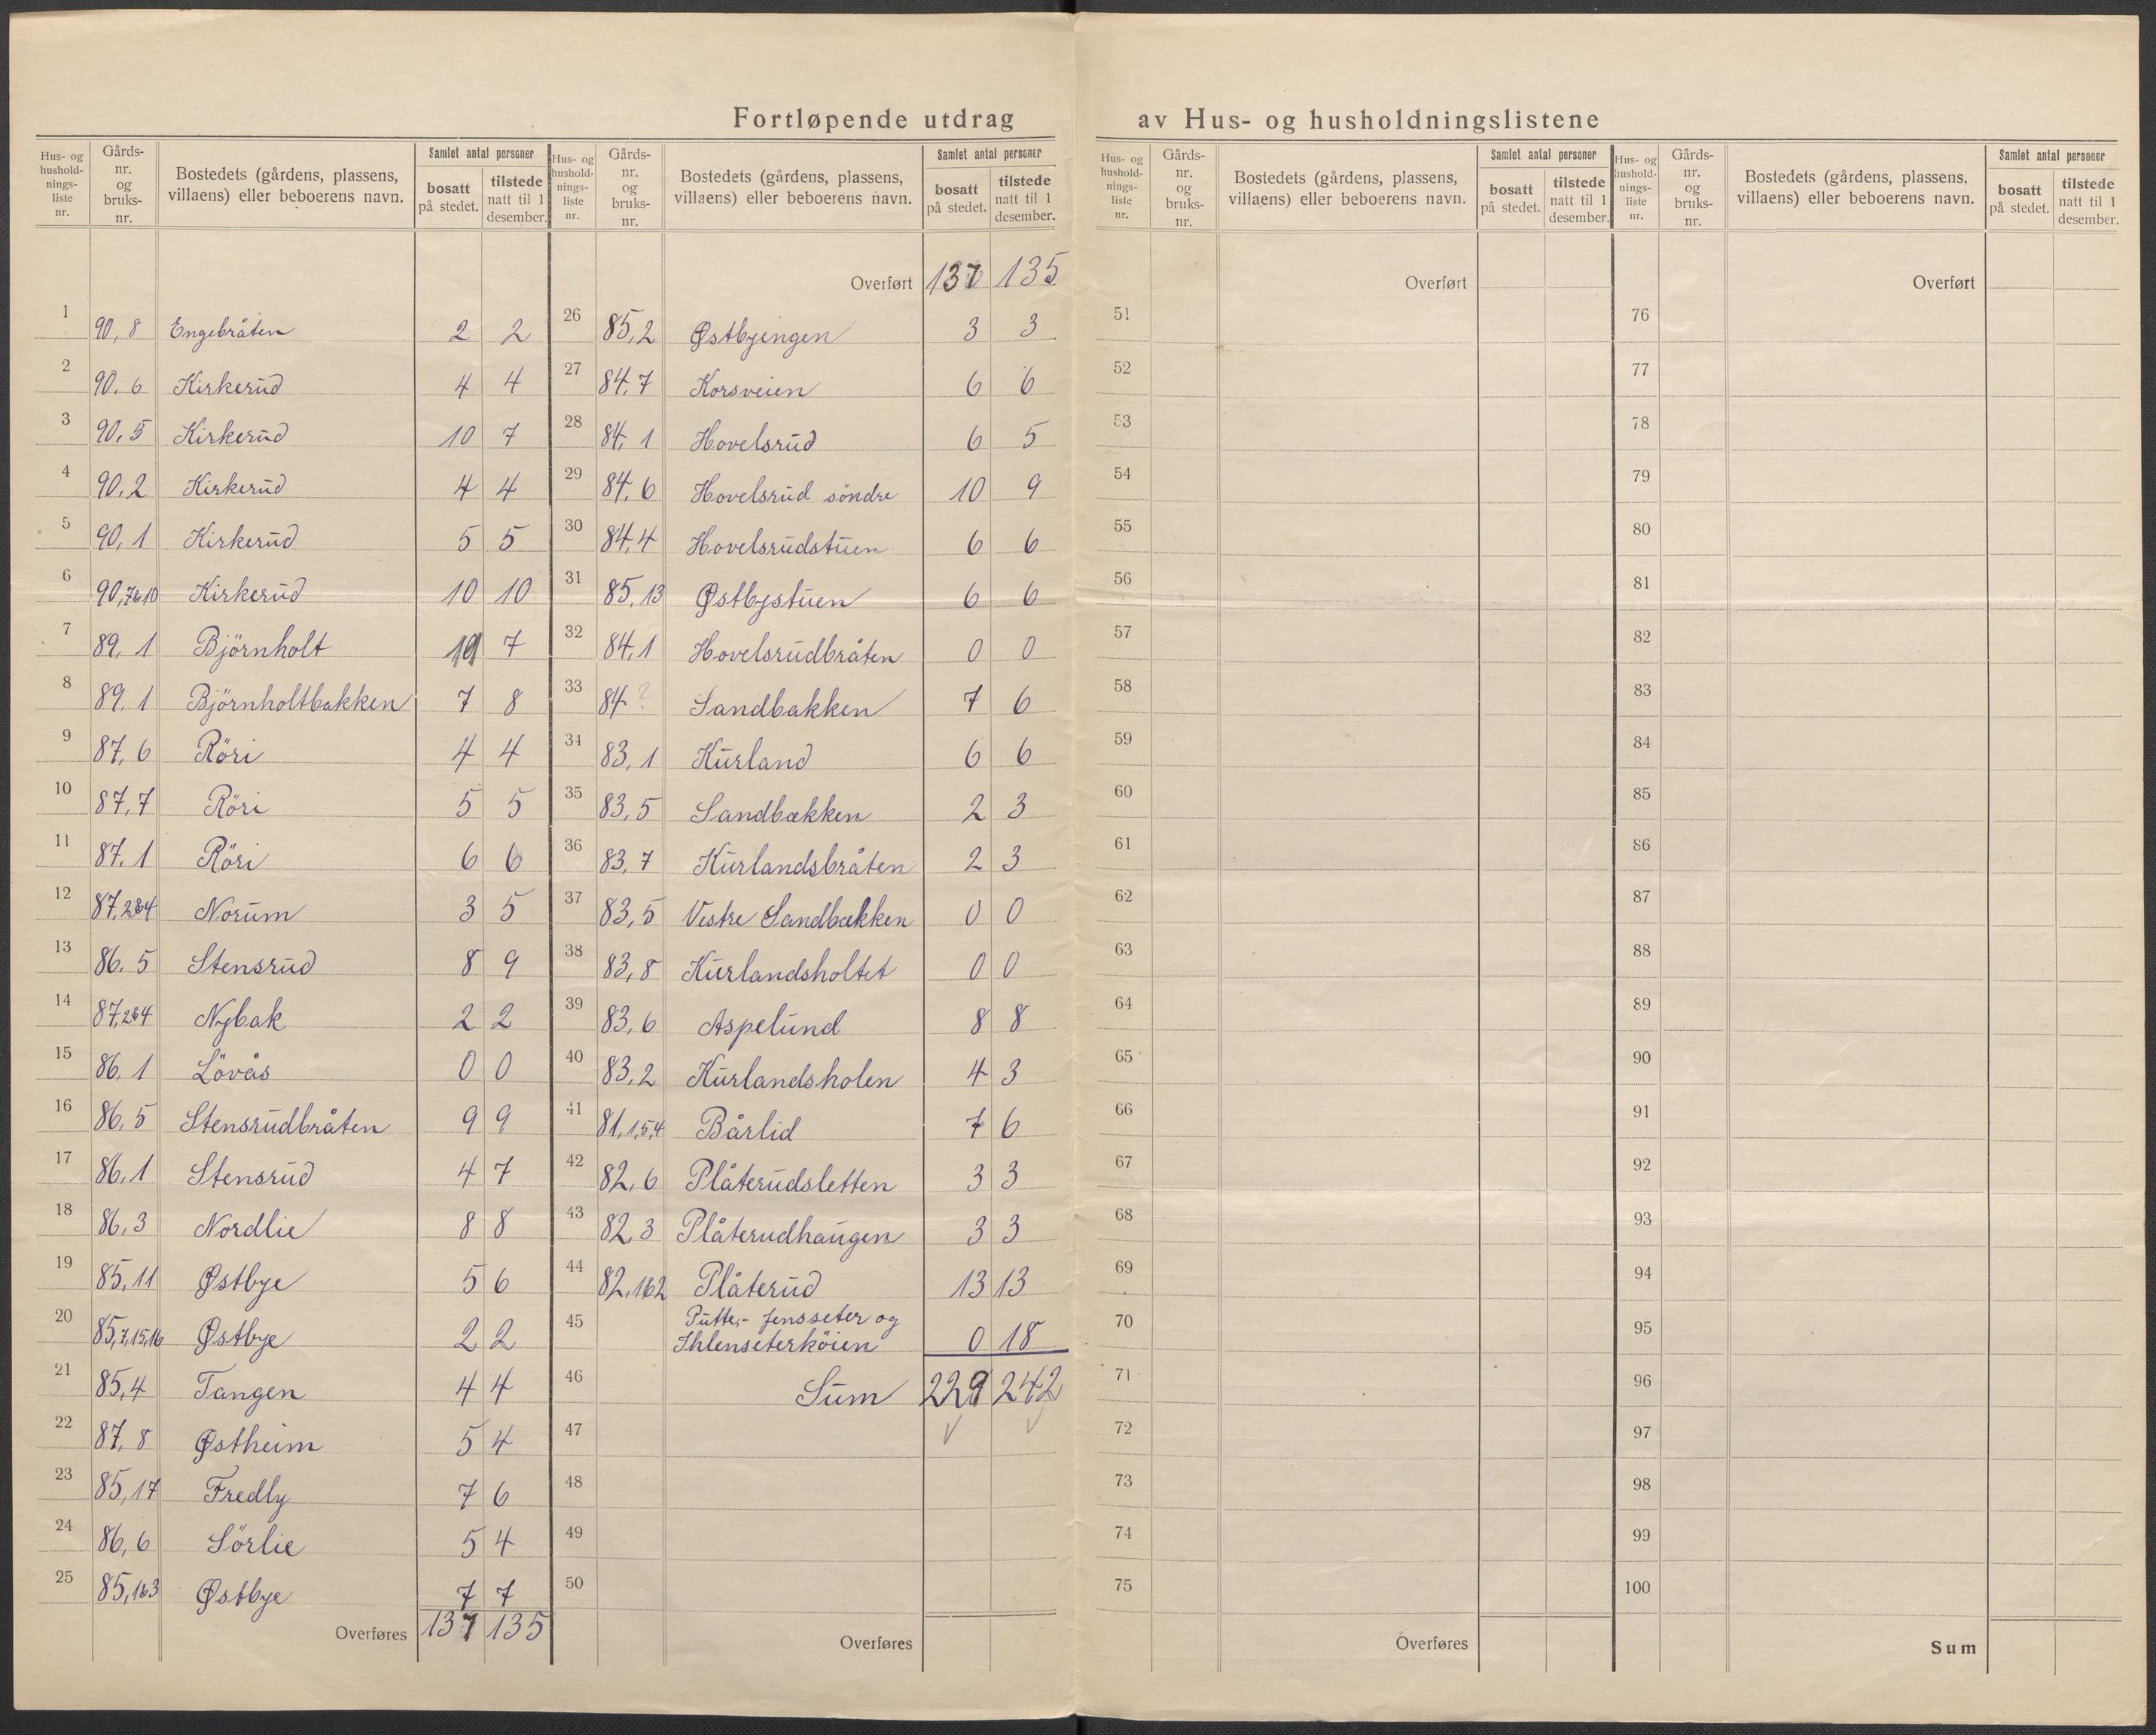 Fortløpende utdrag av Hus- og husholdningslistene
Hus- og husholdnings-liste nr. | Gårds-nr. og bruks-nr. | Bostedets (gårdens, plassens, villaens) eller beboerens navn. | Samlet antal personer | bosatt på stedet. | tilstede natt til 1 desember.
1 90,8 Engebråten 2 2
2 90,6 Kirkerud 4 4
3 90,5 Kirkerud 10 7
4 90,2 Kirkerud 4 4
5 90,1 Kirkerud 5 5
6 90,7&10 Kirkerud 10 10
7 89,1 Björnholt 7
8 89,1 Björnholtbakken 7 8
9 87,6 Röri 4 4
10 87,7 Röri 5 5
11 87,1 Röri 6 6
12 87,2&4 Norum 3 5
13 86,5 Stensrud 8 9
14 87,2&4 Nybak 2 2
15 86,1 Lövås 0 0
16 86,5 Stensrudbråten 9 9
17 86,1 Stensrud 4 7
18 86,3 Nordlie 8 8
19 85,11 Østbye 5 6
20 85,7,15,16 Østbye 2 2
21 85,4 Tangen 4 4
22 87,8 Østheim 5 4
23 85,17 Fredly 7 6
24 86,6 Sörlie 5 4
25 85,1&3 Østbye 7 7
Overføres 137 135
Hus- og husholdnings-liste nr. | Gårds-nr. og bruks-nr. | Bostedets (gårdens, plassens, villaens) eller beboerens navn. | Samlet antal personer | bosatt på stedet. | tilstede natt til 1 desember.
Overført 137 135
26 85,2 Østbyengen 3 3
27 84,7 Korsveien 6 6
28 84,1 Hovelsrud 6 5
29 84,6 Hovelsrud söndre 10 9
30 84,4 Hovelsrudstuen 6 6
31 85,13 Østbystuen 6 6
32 84,1 Hovelsrudbråten 0 0
33 84 ? Sandbakken 7 6
34 83,1 Kurland 6 6
35 83,5 Sandbækken 2 3
36 83,7 Kurlandsbråten 2 3
37 83,5 Vestre Sandbækken 0 0
38 83,8 Kurlandsholtet 0 0
39 83,6 Aspelund 8 8
40 83,2 Kurlandsholen 4 3
41 81,1,5,4 Bårlid 7 6
42 82,6 Plåterudsletten 3 3
43 82,3 Plåterudhaugen 3 3
44 82,1&2 Plåterud 13 13
45 Putte,- Jensseter og
Ihlenseterköien 0 18
46 Sum 229 242
47
48
49
50
Overføres
Hus- og husholdnings-liste nr. | Gårds-nr. og bruks-nr. | Bostedets (gårdens, plassens, villaens) eller beboerens navn. | Samlet antal personer | bosatt på stedet. | tilstede natt til 1 desember.
Overført
51
52
53
54
55
56
57
58
59
60
61
62
63
64
65
66
67
68
69
70
71
72
73
74
75
Overføres
Hus- og husholdnings-liste nr. | Gårds-nr. og bruks-nr. | Bostedets (gårdens, plassens, villaens) eller beboerens navn. | Samlet antal personer | bosatt på stedet. | tilstede natt til 1 desember.
Overført
76
77
78
79
80
81
82
83
84
85
86
87
88
89
90
91
92
93
94
95
96
97
98
99
100
Sum